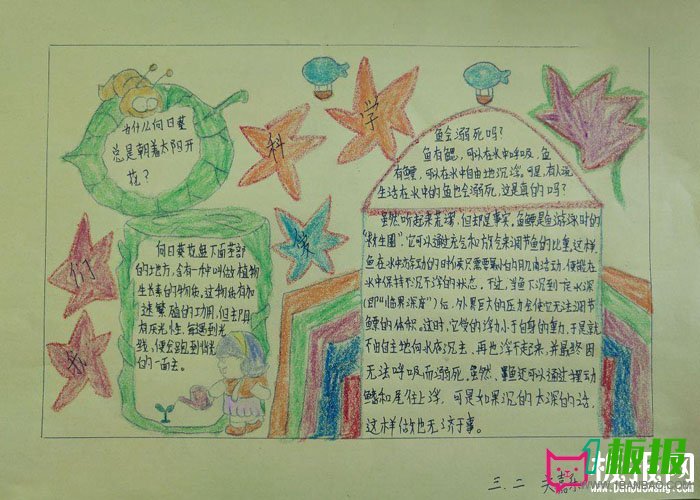 我
们
爱
科
学
为什么向日葵
总是朝着太阳开
花？
向日葵花盘下面茎部
的地方，含有一种叫做植物
生长素的物质，这物质有加
速繁殖的功用，但却具
有反光性，每遇到光
线，便会跑到背光
的一面去。
鱼会溺死吗？
鱼有鳃，可以在水中呼吸，鱼
有鳔，可以在水中自由地沉浮。可是，有人说
生活在水中的鱼也会溺死，这是真的吗？
虽然听起来荒谬，但却是事实。鱼鳔是鱼游泳时的
“救生圈”，它可以通过充气和放气来调节鱼的比重。这样
鱼在水中游动的时候只需要最小的肌肉活动，便能在
水中保持不沉不浮的状态。不过，当鱼下沉到一定水深
（即“临界深度”）后，外界巨大的压力会使它无法调节
鳔的体积。这时，它受的浮力小于自身的重力，于是就
不由自主地向水底沉去，再也浮不起来，并最终因
无法呼吸而溺死。虽然，鱼还可以通过摆动
鳍和尾往上浮，可是如果沉的太深的话，
这样做也无济于事。
三.二
1板报
WWW.1BANBAO.COM